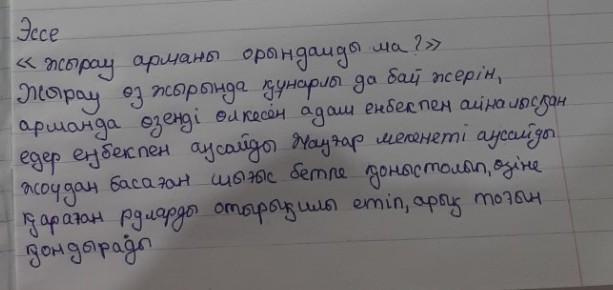 Эссе
«Жырау арманы орындалды ма?»
Жырау өз жырында құнарлы да бай жерін,
арманда өзенді өлкесен адам енбекпен айналысқан
едер еңбекпен аусайды Жауғар мекенеті аусайды
жоудан басаған шығыс бетпе қоныстолып, өзіне
қараған руларды отырықшы етіп, арық тоғын
қондырады